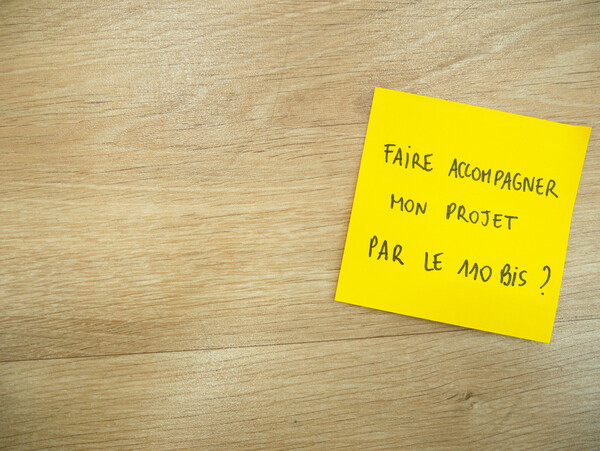 FAIRE ACCOMPAGNER
MON PROJET
PAR LE 110 Bis ?